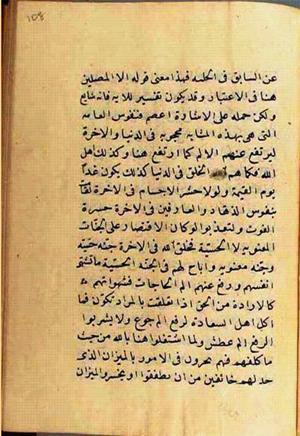 عن السابق فى الحلبه فهذا معنى قوله الا المصلين
هنا فى الاعتبار وقد يكون تفسير للايه فانه شايع
ولكن حمله على الاشارة اعصم فنفوس العامه
التى هى بهذه المثابه محجوبه فى الدنيا والاخرة
لم يرتفع عنهم الالم كما ارتفع هنا وكذلك اهل
الله فكما هم الخلق فى الدنيا كذلك يكون غدا
يوم القيمة ولولا حشر الاجسام فى الاخرة لقامت
بنفوس الزهاد والعارفين فى الاخرة حسرة
الفوت ولتعذبوا لو كان الاقتصار على الجنات
المعنويه لا الحسية فخلق الله فى الاخرة جنه حسيه
وجنه معنويه واباح لهم فى الجنه الحسية ما تشتهى
انفسهم ورفع عنهم الم الحاجات فشهواتهم
كالارادة من الحق اذا تعلقت بالمراد تكون فما
اكل اهل السعادة لرفع الم جوع ولا يشربوا
لرفع الم عطش ولما اشتغلوا هنا بالله من حيث
ما كلفهم فهم يجرون فى الامور بالميزان الذى
حد لهم خائفين من ان يطففوا او يخسروا الميزان